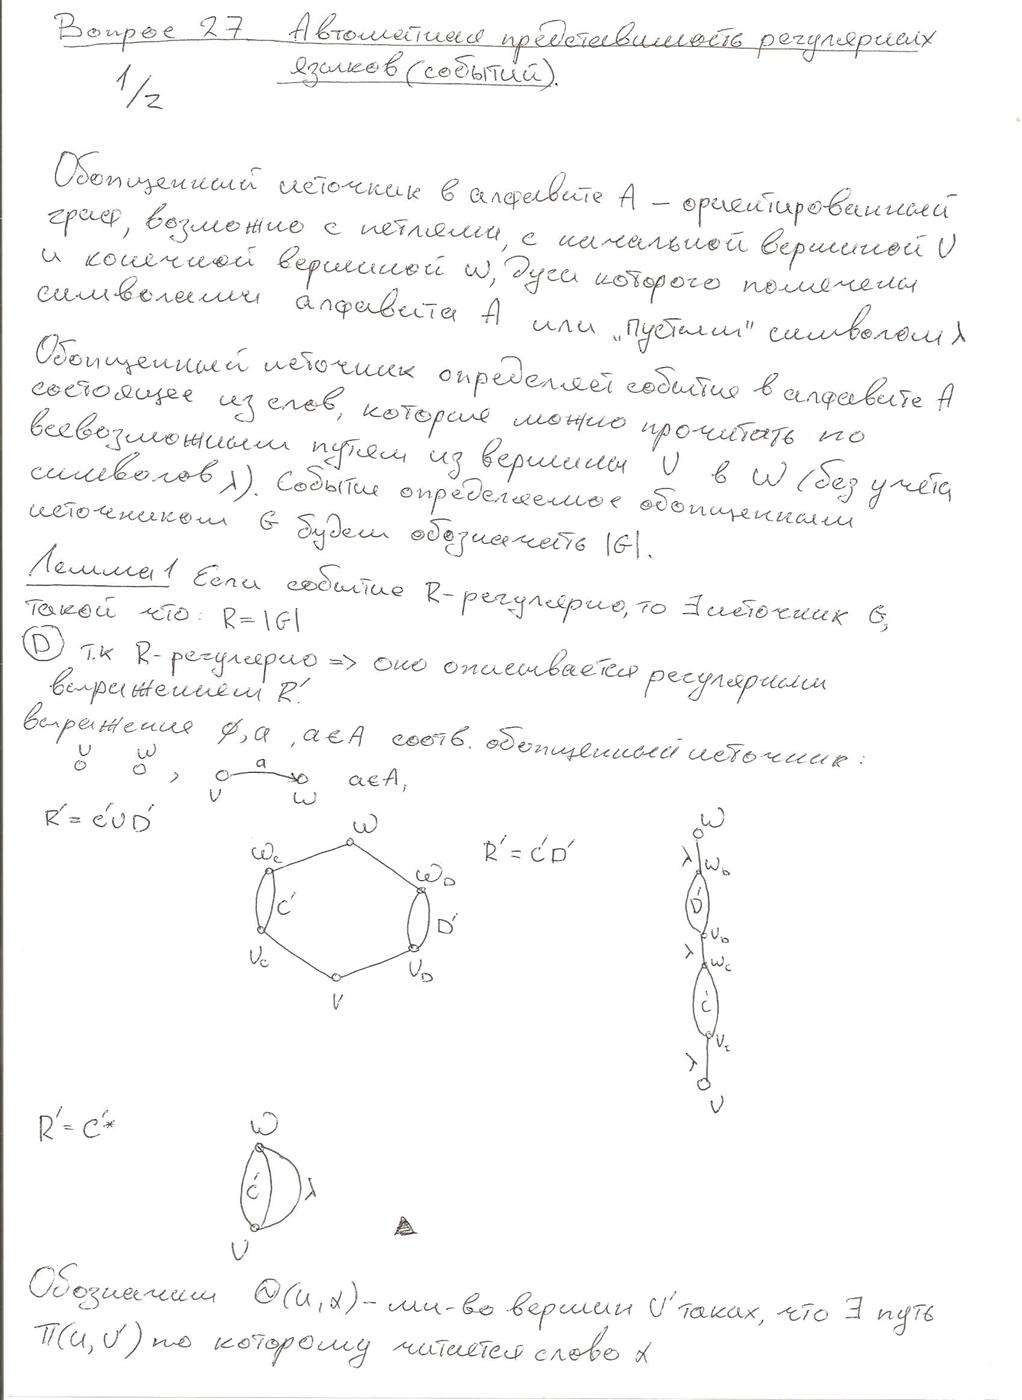 Вопрос 27 Автоматная представимость регулярных
языков (событий).
1/2
Обопщенный источник в алфавите A – ориентированный
граф, возможно с петлями, с начальной вершиной V
и конечной вершиной w, дуги которого помечены
символами алфавита A или „пустым" символом λ
Обопщенный источник определяет событие в алфавите A
состоящее из слов, которые можно прочитать по
всевозможным путям из вершины V в W (без учёта
символов λ). Событие определяемое обопщенным
источником G будем обозначать |G|.
Лемма 1 Если событие R-регулярно, то ∃ источник G,
такой что: R=|G|
D т.к R-регулярно => оно описывается регулярным
выражением R'.
выражения ∅, a, a∈A соотв. обопщенный источник:
V W , V a W a∈A,
R'= C'∪D'
W
Wc WD
C' D'
Vc VD
V
R'= C'D'
W
λ WD
D'
VD
λ Wc
C'
Vc
λ
V
R'= C'*
W
C' λ
V
Обозначим Θ(u,α) – мн-во вершин V' таких, что ∃ путь
П(u,V') по которому читается слово α